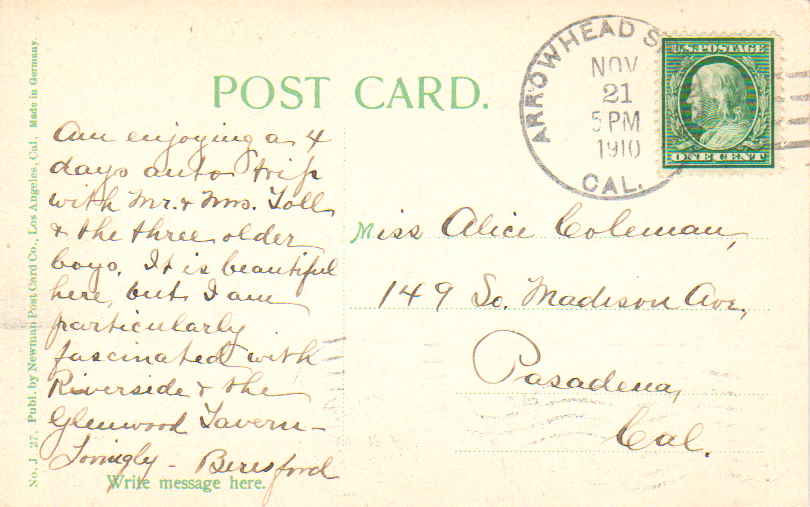 POST CARD.
ARROWHEAD S
NOV
21
5 PM
1910
CAL.
U.S. POSTAGE
ONE CENT
Am enjoying a 4
days auto trip
with Mr. & Mrs. Toll
& the three older
boys. It is beautiful
here, but I am
particularly
fascinated with
Riverside & the
Glenwood Tavern -
Lovingly - Beresford
Write message here.
Miss Alice Coleman,
149 So. Madison Ave,
Pasadena,
Cal.
No. J 27. Publ. by Newman Post Card Co., Los Angeles, Cal. Made in Germany.